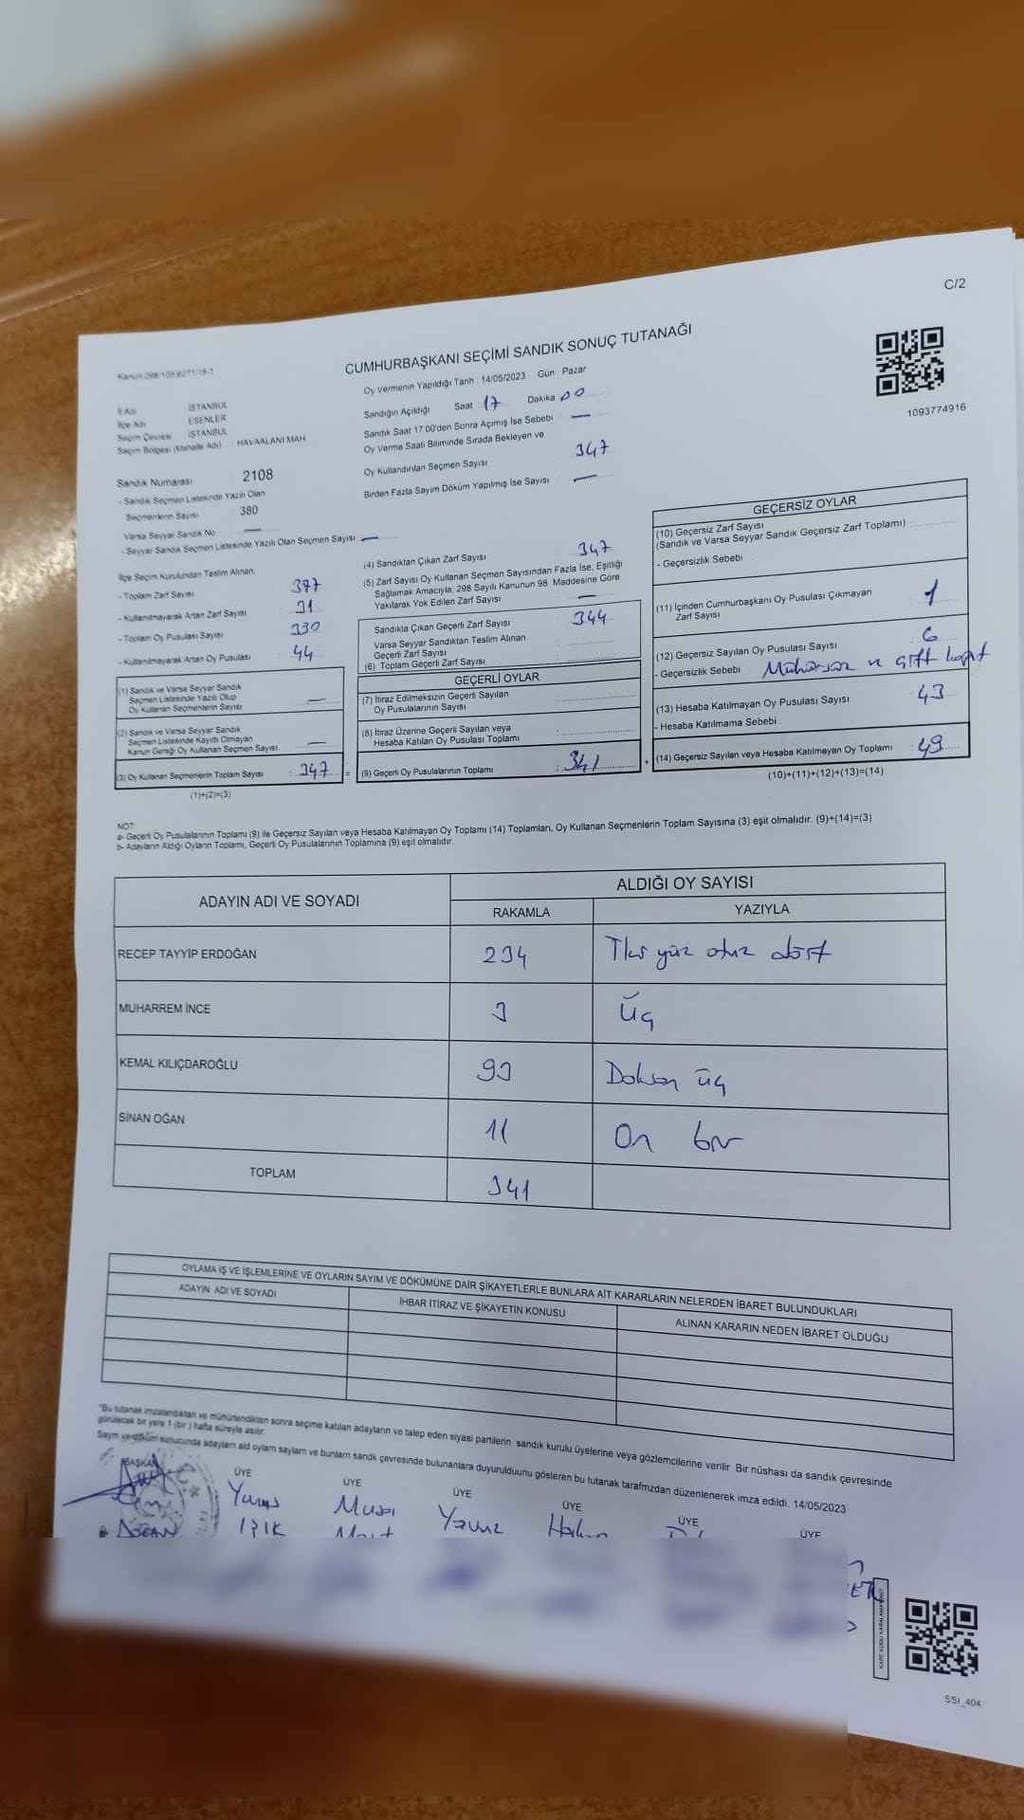 C/2
CUMHURBAŞKANI SEÇİMİ SANDIK SONUÇ TUTANAĞI
1093774916
İl Adı İSTANBUL
İlçe Adı ESENLER
Seçim Çevresi İSTANBUL
Seçim Bölgesi (Mahalle Adı) HAVAALANI MAH
Sandık Numarası 2108
- Sandık Seçmen Listesinde Yazılı Olan
Seçmenlerin Sayısı 380
Varsa Seyyar Sandık No —
- Seyyar Sandık Seçmen Listesinde Yazılı Olan Seçmen Sayısı —
Oy Vermenin Yapıldığı Tarih : 14/05/2023 Gün Pazar
Sandığın Açıldığı Saat 17 Dakika 00
Sandık Saat 17:00'den Sonra Açımış İse Sebebi —
Oy Verme Saati Bitiminde Sırada Bekleyen ve
Oy Kullandırılan Seçmen Sayısı 347
Birden Fazla Sayım Döküm Yapılmış İse Sayısı —
İlçe Seçim Kurulundan Teslim Alınan,
- Toplam Zarf Sayısı 377
- Kullanılmayarak Artan Zarf Sayısı 31
- Toplam Oy Pusulası Sayısı 330
- Kullanılmayarak Artan Oy Pusulası 44
(1) Sandık ve Varsa Seyyar Sandık
Seçmen Listesinde Yazılı Olup
Oy Kullanan Seçmenlerin Sayısı —
(2) Sandık ve Varsa Seyyar Sandık
Seçmen Listesinde Kaydı Olmayan
Kanun Gereği Oy Kullanan Seçmen Sayısı —
(3) Oy Kullanan Seçmenlerin Toplam Sayısı : 347
(1)+(2)=(3)
(4) Sandıktan Çıkan Zarf Sayısı 347
(5) Zarf Sayısı Oy Kullanan Seçmen Sayısından Fazla İse, Eşitliği
Sağlamak Amacıyla; 298 Sayılı Kanunun 98. Maddesine Göre
Yakılarak Yok Edilen Zarf Sayısı —
Sandıkta Çıkan Geçerli Zarf Sayısı 344
Varsa Seyyar Sandıktan Teslim Alınan
Geçerli Zarf Sayısı
(6) Toplam Geçerli Zarf Sayısı
GEÇERLİ OYLAR
(7) İtiraz Edilmeksizin Geçerli Sayılan
Oy Pusulalarının Sayısı
(8) İtiraz Üzerine Geçerli Sayılan veya
Hesaba Katılan Oy Pusulası Toplamı
= (9) Geçerli Oy Pusulalarının Toplamı : 341
GEÇERSİZ OYLAR
(10) Geçersiz Zarf Sayısı
(Sandık ve Varsa Seyyar Sandık Geçersiz Zarf Toplamı)
- Geçersizlik Sebebi
(11) İçinden Cumhurbaşkanı Oy Pusulası Çıkmayan
Zarf Sayısı 1
(12) Geçersiz Sayılan Oy Pusulası Sayısı 6
- Geçersizlik Sebebi ve çift
(13) Hesaba Katılmayan Oy Pusulası Sayısı 43
- Hesaba Katılmama Sebebi :
+ (14) Geçersiz Sayılan veya Hesaba Katılmayan Oy Toplamı : 49
(10)+(11)+(12)+(13)=(14)
NOT:
a- Geçerli Oy Pusulalarının Toplamı (9) ile Geçersiz Sayılan veya Hesaba Katılmayan Oy Toplamı (14) Toplamları, Oy Kullanan Seçmenlerin Toplam Sayısına (3) eşit olmalıdır. (9)+(14)=(3)
b- Adayların Aldığı Oyların Toplamı, Geçerli Oy Pusulalarının Toplamına (9) eşit olmalıdır.
ADAYIN ADI VE SOYADI ALDIĞI OY SAYISI
RAKAMLA YAZIYLA
RECEP TAYYİP ERDOĞAN 234 İki yüz otuz dört
MUHARREM İNCE 3 Üç
KEMAL KILIÇDAROĞLU 93 Doksan üç
SİNAN OĞAN 11 On bir
TOPLAM 341
OYLAMA İŞ VE İŞLEMLERİNE VE OYLARIN SAYIM VE DÖKÜMÜNE DAİR ŞİKAYETLERLE BUNLARA AİT KARARLARIN NELERDEN İBARET BULUNDUKLARI
ADAYIN ADI VE SOYADI İHBAR İTİRAZ VE ŞİKAYETİN KONUSU ALINAN KARARIN NEDEN İBARET OLDUĞU
*Bu tutanak imzalandıktan ve mühürlendikten sonra seçime katılan adayların ve talep eden siyasi partilerin sandık kurulu üyelerine veya gözlemcilerine verilir. Bir nüshası da sandık çevresinde
görülecek bir yere 1 (bir) hafta süreyle asılır.
Sayım ve döküm sonucunda adayların ald oyların sayıların ve bunların sandık çevresinde bulunanlara duyurulduunu gösteren bu tutanak tarafımızdan düzenlenerek imza edildi. 14/05/2023
BAŞKAN ÜYE ÜYE ÜYE ÜYE ÜYE ÜYE
Yunus Musa Yavuz Hakan
DOĞAN IŞIK Mert
SSI_404